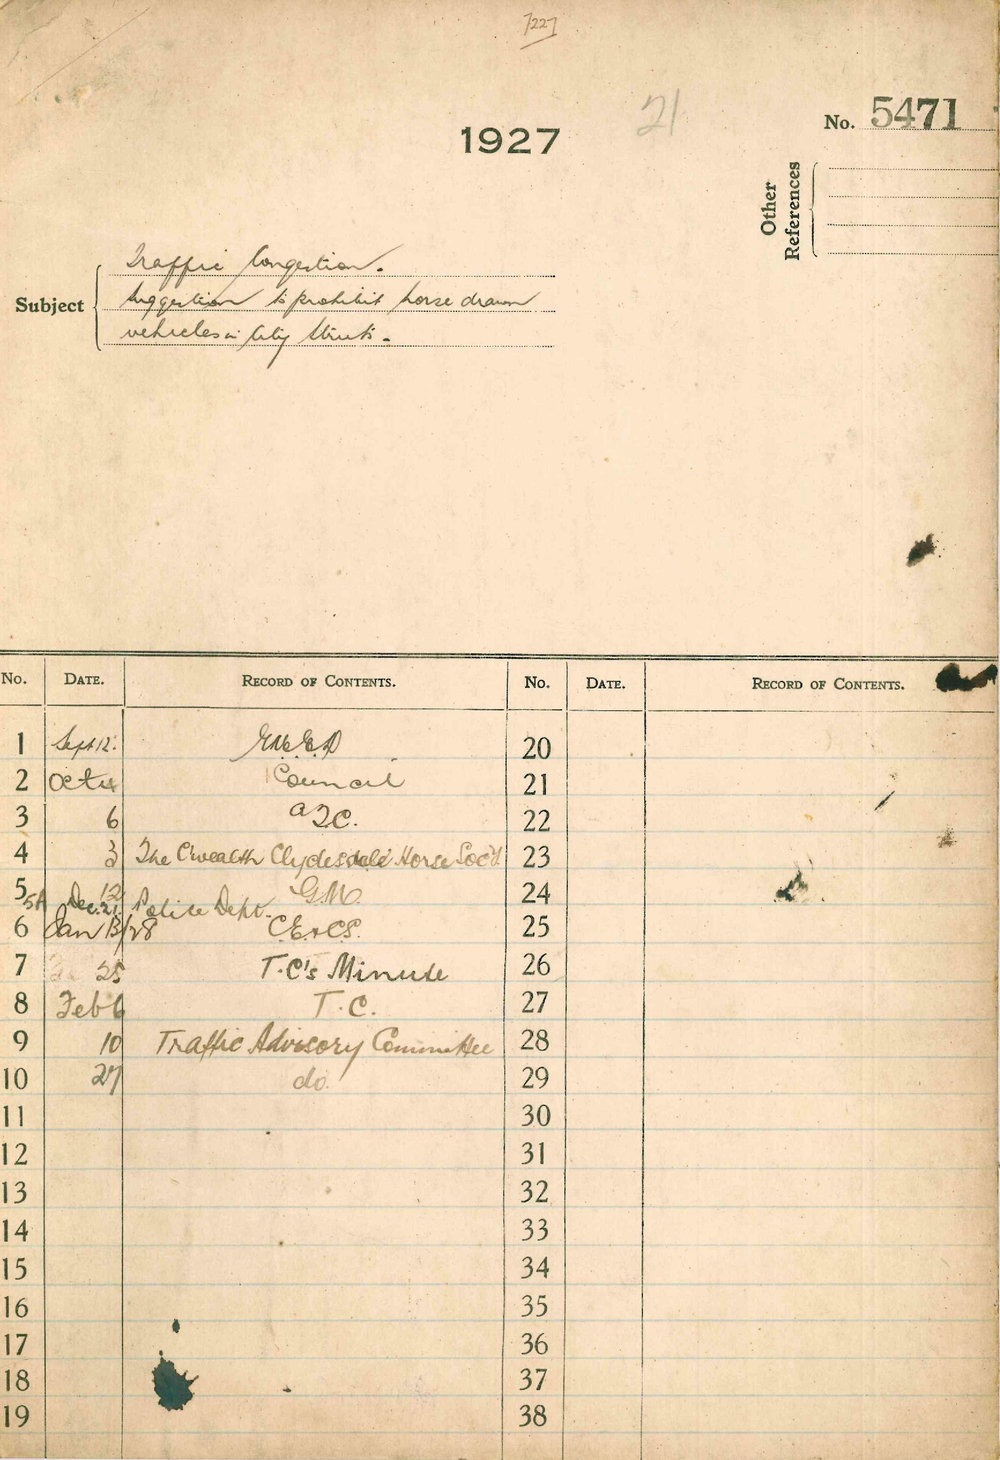 7227
21
1927
No. 5471
Other References
Subject
Traffic Congestion.
Suggestion to prohibit horse drawn
vehicles in City Streets.
No. DATE. RECORD OF CONTENTS. No. DATE. RECORD OF CONTENTS.
1 Sept 12. 20
2 Oct 4 Council 21
3 6 a T.C. 22
4 3 The C'wealth Clydesdale Horse Soc'y 23
5 12 G.M. 24
5A Dec. 21. Police Dept.
6 Jan 13/28 C.E. & C.S. 25
7 25 T.C's Minute 26
8 Feb 6 T.C. 27
9 10 Traffic Advisory Committee 28
10 27 do. 29
11 30
12 31
13 32
14 33
15 34
16 35
17 36
18 37
19 38